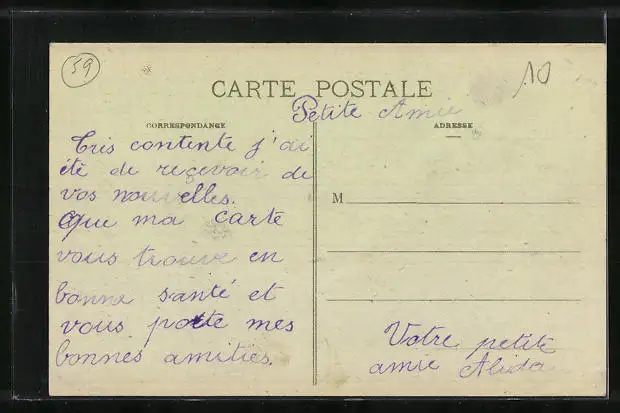 59
10
CARTE POSTALE
Petite Amie
CORRESPONDANCE
ADRESSE
Très contente j'ai
été de reçevoir de
vos nouvelles.
Que ma carte
vous trouve en
bonne santé et
vous porte mes
bonnes amitiés.
M
Votre petite
amie Alida